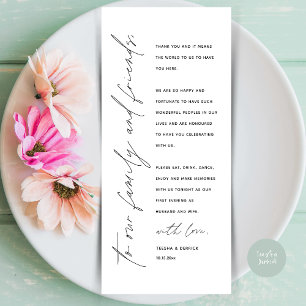 to our family and friends,
THANK YOU AND IT MEANS
THE WORLD TO US TO HAVE
YOU HERE.
WE ARE SO HAPPY AND
FORTUNATE TO HAVE SUCH
WONDERFUL PEOPLE IN OUR
LIVES AND ARE HONOURED
TO HAVE YOU CELEBRATING
WITH US.
PLEASE EAT, DRINK, DANCE,
ENJOY AND MAKE MEMORIES
WITH US TONIGHT AS OUR
FIRST EVENING AS
HUSBAND AND WIFE.
with love,
TEESHA & DERRICK
10.10.20xx
teesha
derrick